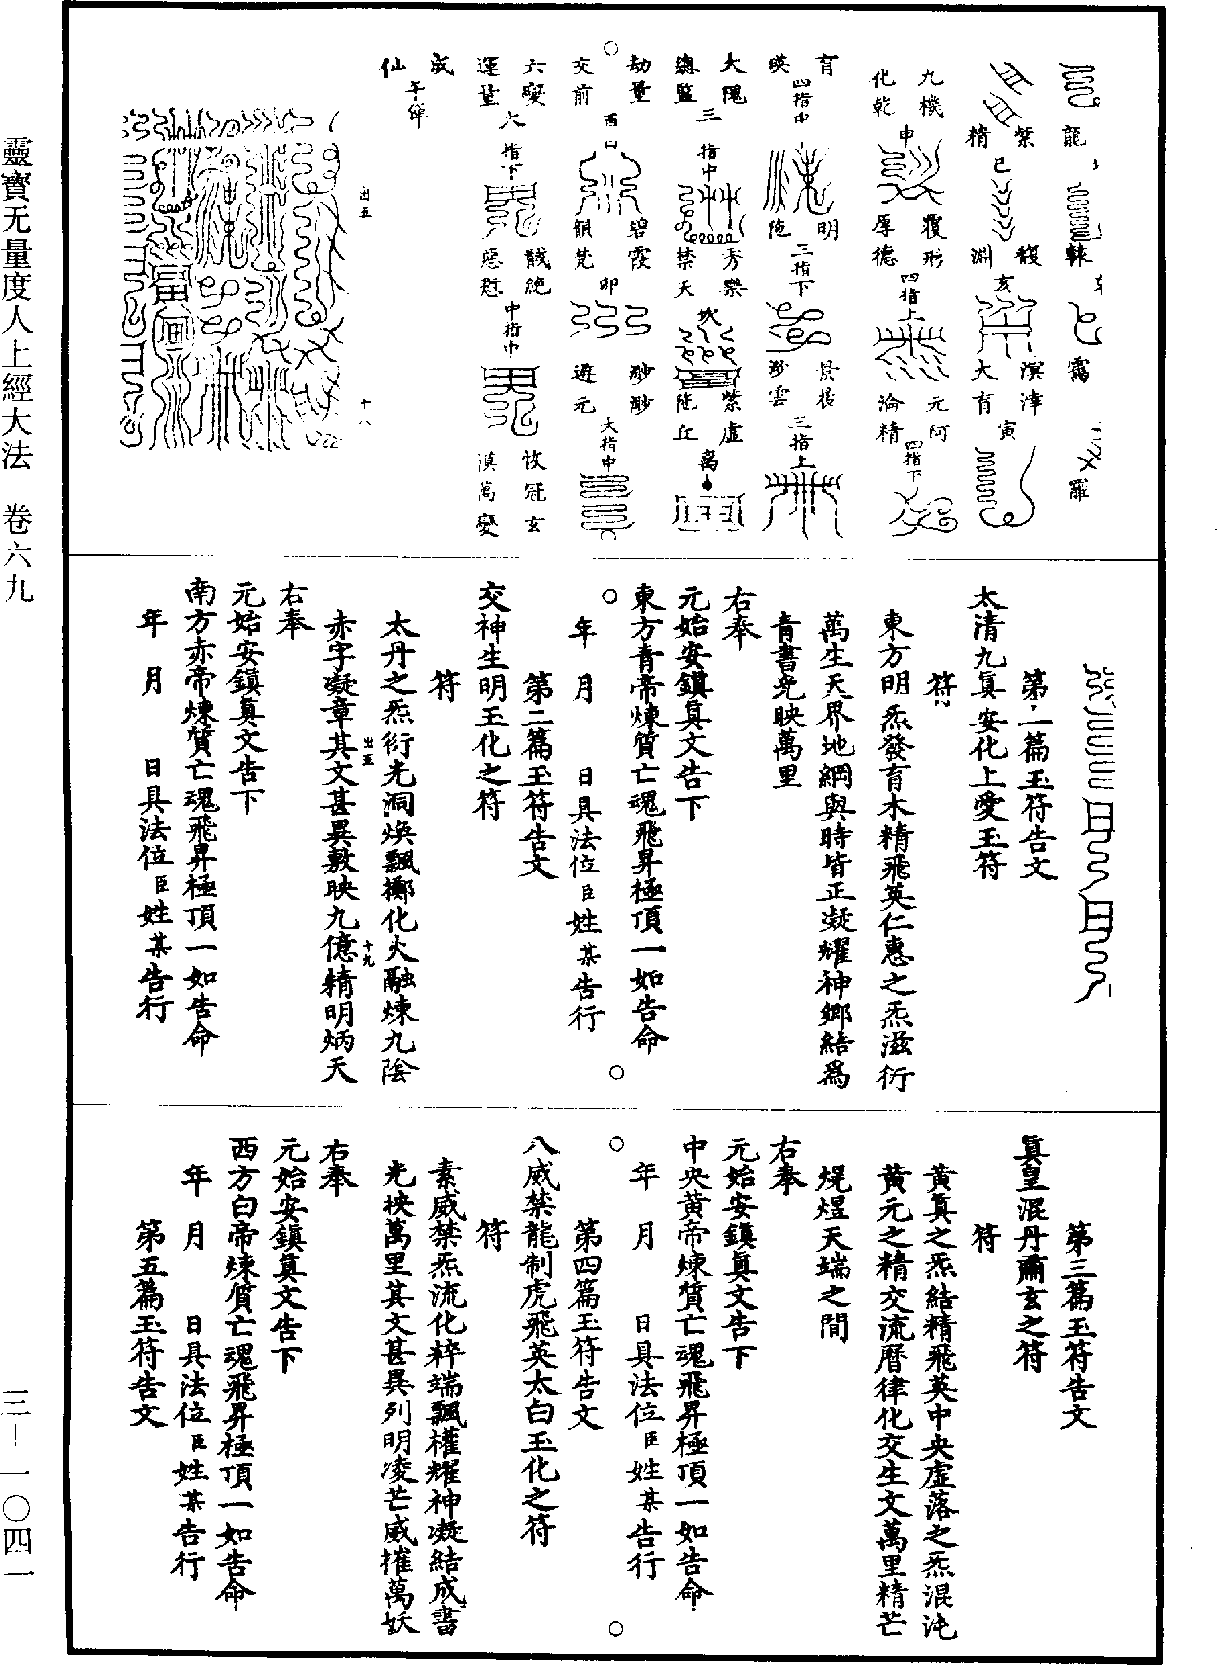 靈寶无量度人上經大法　卷六九
三—一〇四一
龍
轅
霭
羅
紫精
巳
馥淵
亥
溟涬大育
寅
九機化乾
申
覆形厚德
四指上
元阿淪精
四指下
育暎
四指中
明陁
三指下
三指上
大隗總監
三指中
秀樂禁天
坎
紫虛陁丘
離
劫量交前
酉
碧霞
卯
眇眇遊元
大指中
六變運量
六指下
惡
中指中
攸冠玄漠萬變
成仙
出五
十八
第一篇玉符告文
太清九眞安化上愛玉符
符
東方明炁發育木精飛英仁惠之炁滋衍
萬生天界地綱與時皆正凝耀神鄉結爲
青書光映萬里
右奉
元始安鎮眞文告下
東方青帝煉質亡魂飛昇極頂一如告命
年　月　日具法位臣姓某告行
第二篇玉符告文
交神生明玉化之符
符
太丹之炁衍光洞煥飄擲化火融煉九陰
赤字凝章其文甚異敷映九億精明炳天
出五
十九
右奉
元始安鎮眞文告下
南方赤帝煉質亡魂飛昇極頂一如告命
年　月　日具法位臣姓某告行
第三篇玉符告文
眞皇混丹爾玄之符
符
黃眞之炁結精飛英中央虛落之炁混沌
黃元之精交流曆律化交生文萬里精芒
焜煌天端之間
右奉
元始安鎮眞文告下
中央黃帝煉質亡魂飛昇極頂一如告命
年　月　日具法位臣姓某告行
第四篇玉符告文
八威禁龍制虎飛英太白玉化之符
符
素威禁炁流化粹端飄權耀神凝結成書
光挾萬里其文甚異列明凌芒威摧萬妖
右奉
元始安鎮眞文告下
西方白帝煉質亡魂飛昇極頂一如告命
年　月　日具法位臣姓某告行
第五篇玉符告文